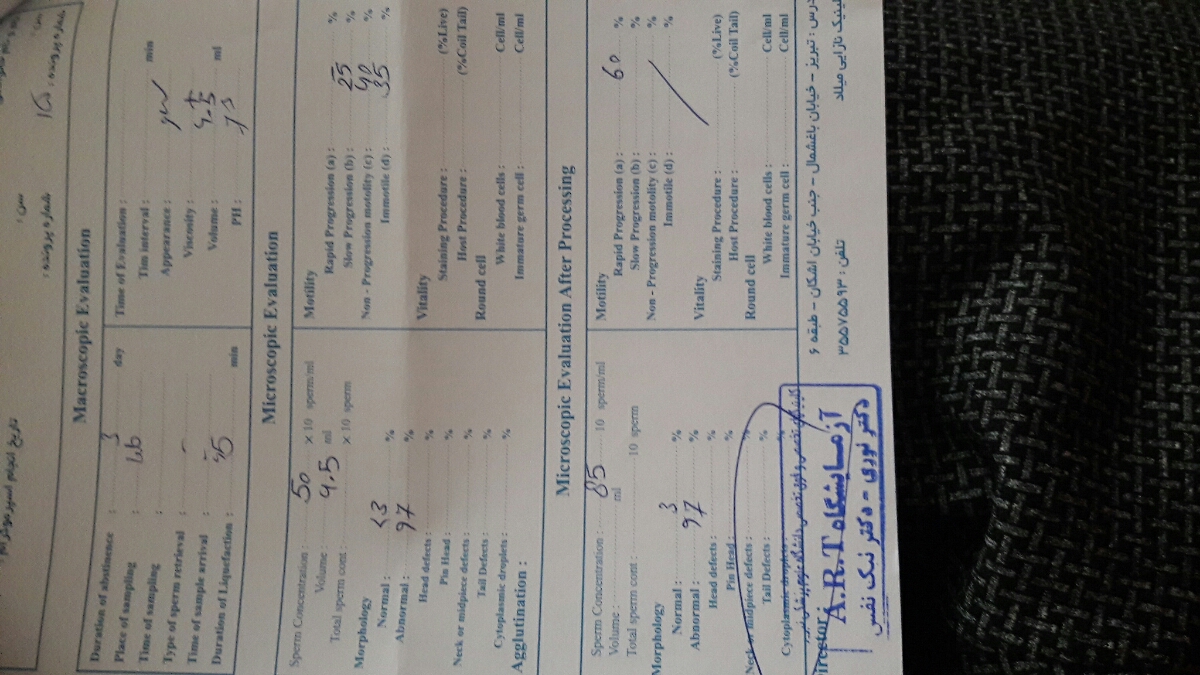 شماره پرونده :
سن :
شماره پرونده :
تاریخ انجام اسپرموگرام :
Macroscopic Evaluation
Duration of abstinence : 3 day
Place of sampling : Lab
Time of sampling :
Type of sperm retrieval : -
Time of sample arrival :
Duration of Liquefaction : 45 min
Time of Evaluation :
Tim interval : min
Appearance :
Viscosity :
Volume : 4.5 ml
PH :
Microscopic Evaluation
Sperm Concentration : 50 × 10 sperm/ml
Volume : 4.5 ml
Total sperm cont : × 10 sperm
Morphology
Normal : <3 %
Abnormal : 97 %
Head defects : %
Pin Head : %
Neck or midpiece defects : %
Tail Defects : %
Cytoplasmic droplets : %
Agglutination :
Motility
Rapid Progression (a) : %
Slow Progression (b) : 25 %
Non - Progression motolity (c) : 40 %
Immotile (d) : 35 %
Vitality
Staining Procedure : (%Live)
Host Procedure : (%Coil Tail)
Round cell
White blood cells : Cell/ml
Immature germ cell : Cell/ml
Microscopic Evaluation After Processing
Sperm Concentration : 85 10 sperms/ml
Volume : ml
Total sperm cont : 10 sperm
Morphology
Normal : 3 %
Abnormal : 97 %
Head defects : %
Pin Head : %
Neck or midpiece defects : %
Tail Defects : %
Cytoplasmic droplets : %
Motility
Rapid Progression (a) : 60 %
Slow Progression (b) : %
Non - Progression motolity (c) : %
Immotile (d) : %
Vitality
Staining Procedure : (%Live)
Host Procedure : (%Coil Tail)
Round cell
White blood cells : Cell/ml
Immature germ cell : Cell/ml
آدرس : تبریز - خیابان باغشمال - جنب خیابان اشکان - طبقه ۶
کلینیک نازایی میلاد
تلفن : ۳۵۵۷۵۵۹۳
آزمایشگاه A.R.T
دکتر نوری - دکتر نیک نفس